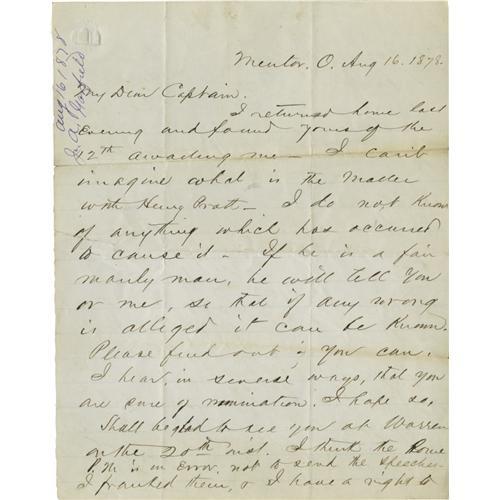 Aug 16 1878
J. A. Garfield
Mentor. O. Aug 16. 1878.
My Dear Captain.
I returned home last
Evening and found yours of the
12th awaiting me — I can't
imagine what is the Matter
with Henry Pratt — I do not Know
of anything which has occurred
to cause it — If he is a fair
manly man, he will tell you
or me, so that if any wrong
is alleged it can be Known.
Please find out if you can.
I hear, in several ways, that you
are sure of nomination. I hope so,
Shall be glad to see you at Warren
on the 20th inst. I think the
P.M. is in Error, not to send the speeches
I franked them, & I have a right to